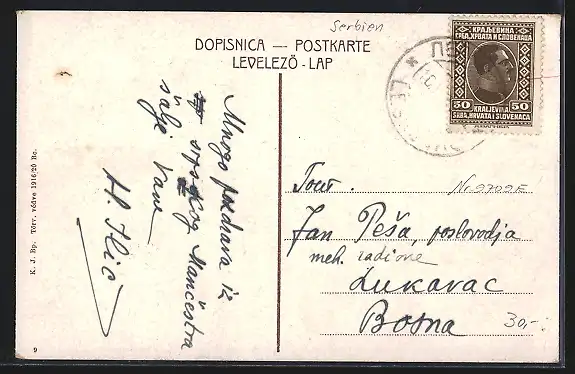 Serbien
DOPISNICA — POSTKARTE
LEVELEZŐ - LAP
КРАЉЕВИНА
СРБА, ХРВАТА И СЛОВЕНАЦА
50 KRALJEVINA 50
SRBA, HRVATA I SLOVENACA
Mnogo pozdrava iz
srpskog Mančestra
šalje Vam
H. Ilić
Tout.
Nr 9709E
Jan Peša, poslovodja
meh. radione
Lukavac
Bosna
30,-
K. J. Bp. Törv. védve 1916/20 Be.
9